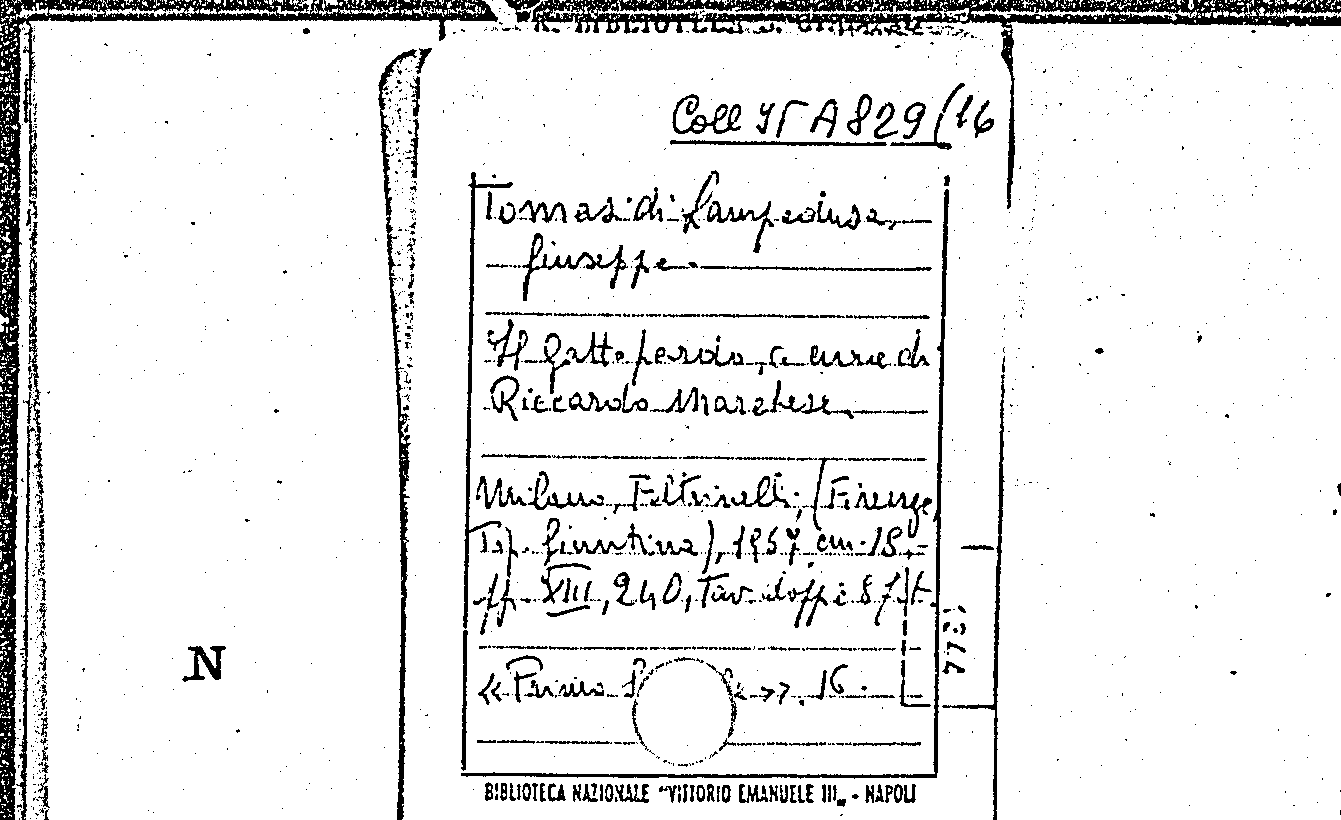 Coll IΓ A 829 (16
Tomasi di Lampedusa,
Giuseppe.
Il gattopardo, a cura di
Riccardo Marchese.
Milano, Feltrinelli, (Firenze
Tip. Giuntina), 1967. cm. 18.
pp. XIII, 240, Tav. doppie 8 f. t.
« Primo », 16.
773)
N
BIBLIOTECA NAZIONALE "VITTORIO EMANUELE III„ - NAPOLI